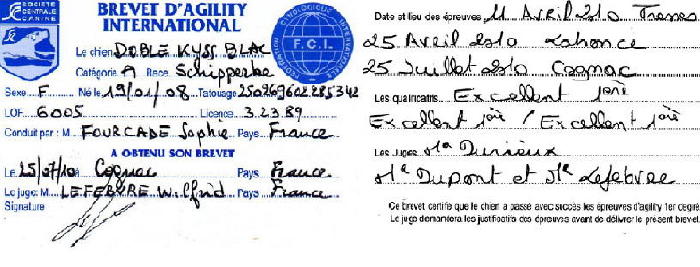 SOCIETE
CENTRALE
CANINE
BREVET D'AGILITY
INTERNATIONAL
FEDERATION CYNOLOGIQUE INTERNATIONALE
F.C.I.
Le chien DOBLE KYSS BLAC
Catégorie A Race Schipperke
Sexe F Né le 19/01/08 Tatouage 250269602285342
LOF 6005 Licence 32389
Conduit par : M FOURCADE Sophie Pays France
A OBTENU SON BREVET
Le 25/07/10 Cognac Pays France
Le juge : M LEFEBVRE Wilfrid Pays France
Signature
Date et lieu des épreuves 11 Avril 2010
25 Avril 2010 Lahonce
25 Juillet 2010 Cognac
Les qualificatifs Excellent 1ère
Excellent 1ère / Excellent 1ère
Les Juges Mr Durieux
Mr Dupont et Mr Lefebvre
Ce brevet certifie que le chien a passé avec succès les épreuves d'agility 1er degré
Le juge demandera les justificatifs des épreuves avant de délivrer le présent brevet.